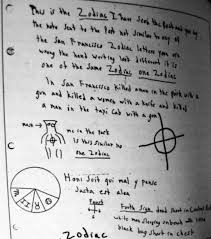 This is the Zodiac I have seen the Post and you say
the note sent to the Post not similar to any of
the San Francisco Zodiac letters you are
wrong the hand writing look different it is
one of the same Zodiac one Zodiac
In San Francisco killed a man in the park with a
gun and killed a women with a knife and killed
a man in the taxi cab with a gun
mask
me in the park
is this similar no
one Zodiac
Honi Soit qui mal y pense
Jacta est alea
Fourth Sign dead shoot in Central Park
white man sleeping on bench with little
black bag shoot in chest
Zodiac